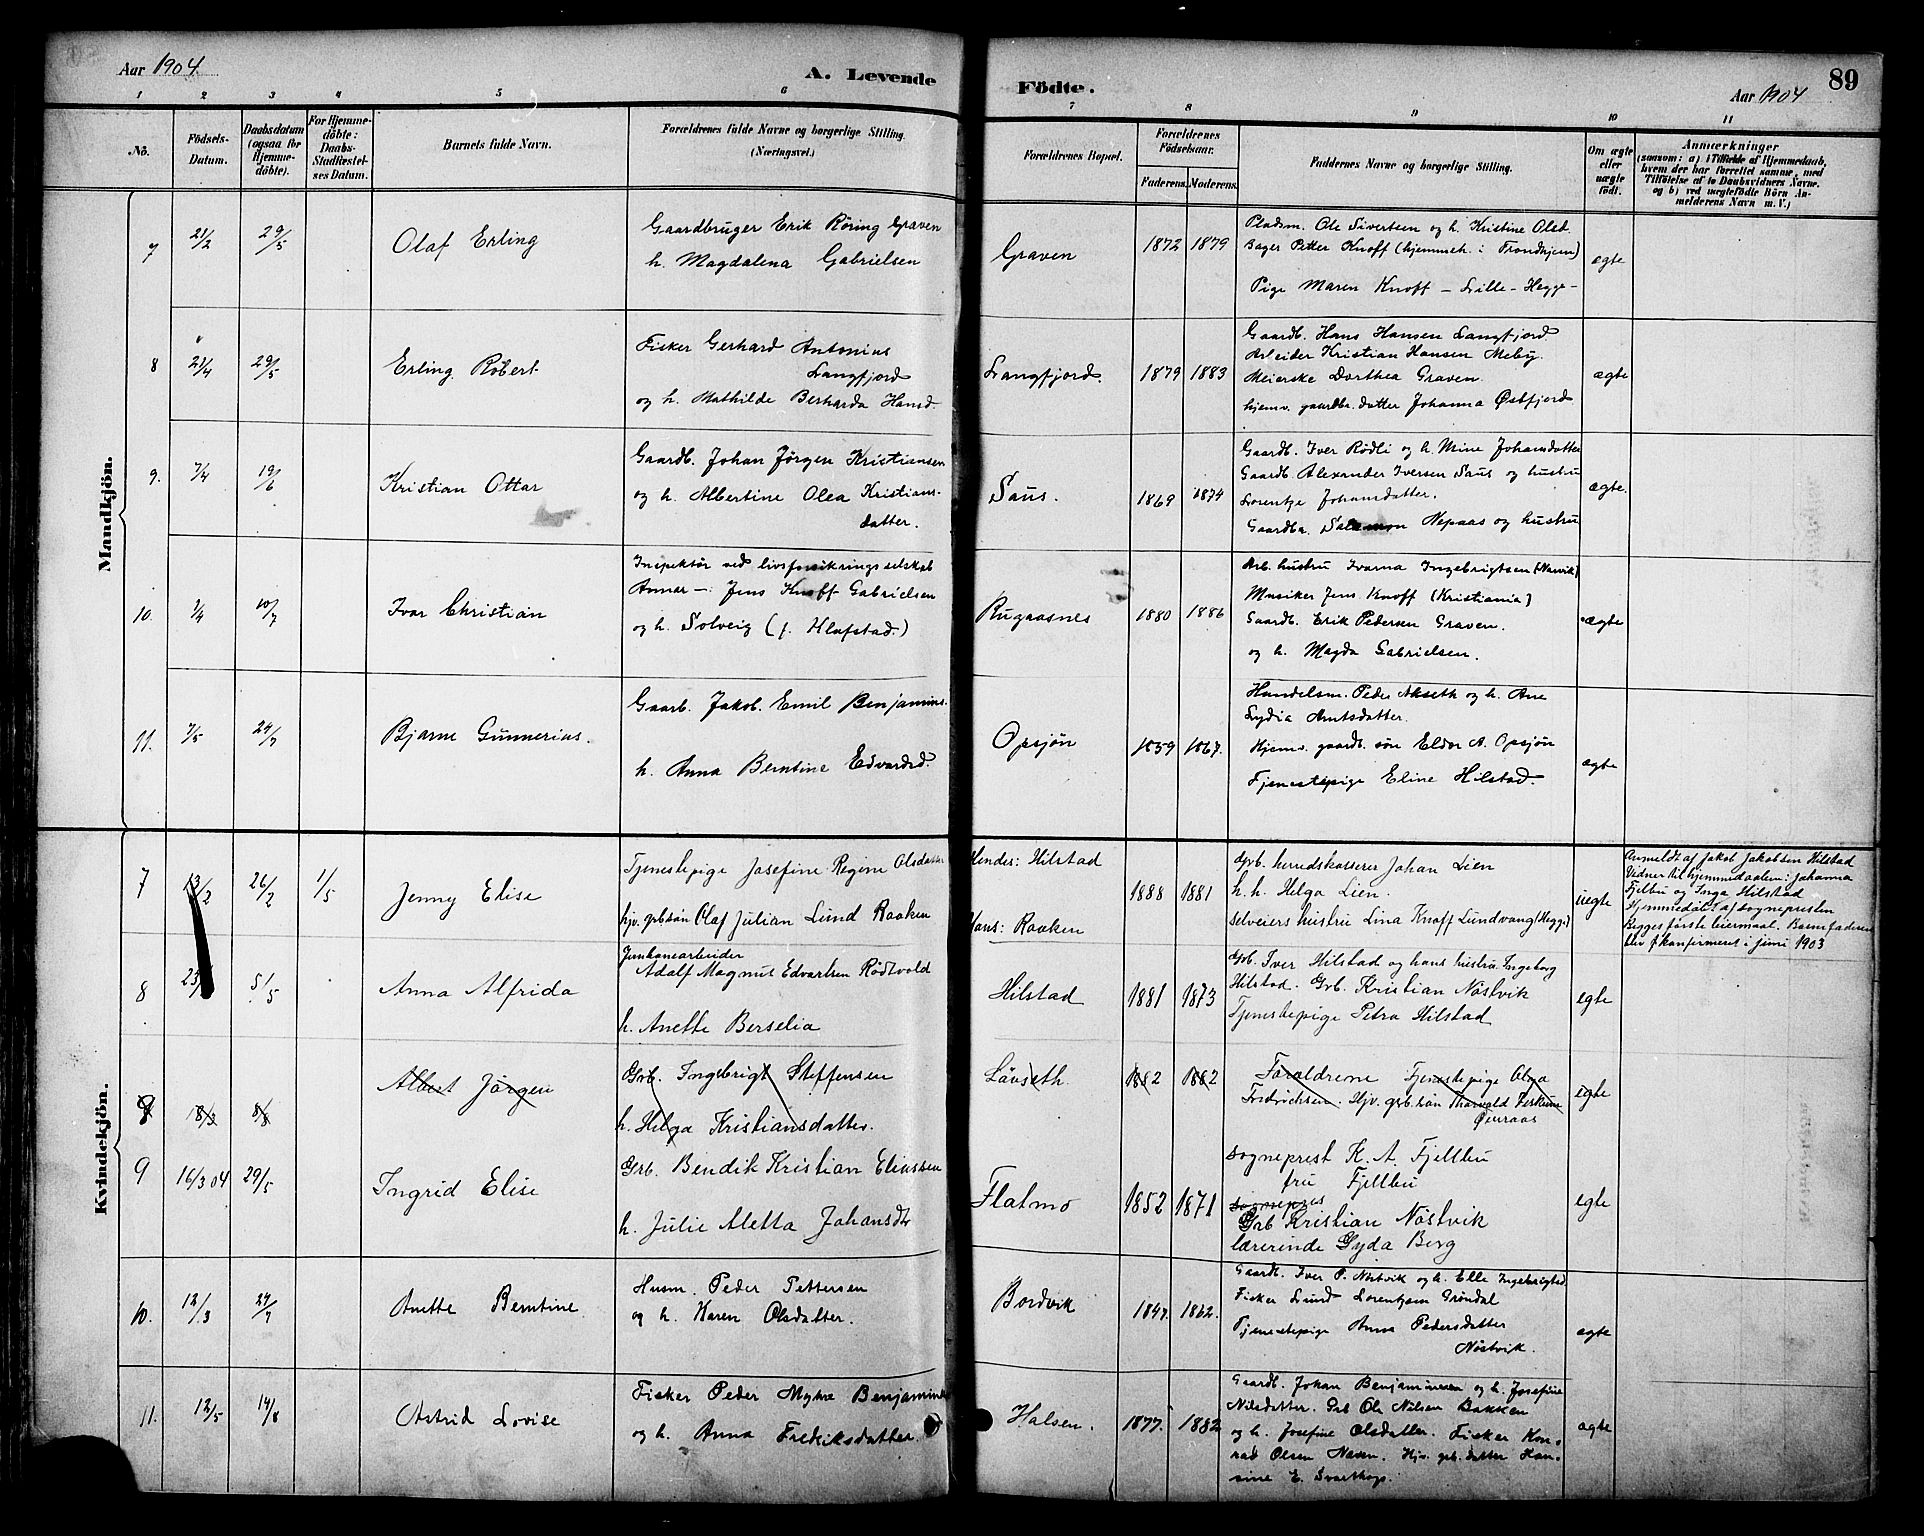 Aar 1904.
A. Levende
Födte.
Aar 1904
89
1 2 3 4 5 6 7 8 9 10 11
No.
Födsels-
Datum.
Daabsdatum
(ogsaa for
Hjemme-
döbte).
For Hjemme-
döbte:
Daabs-
Stadfæstel-
ses Datum.
Barnets fulde Navn.
Forældrenes fulde Navne og borgerlige Stilling.
(Næringsvei.)
Forældrenes Bopæl.
Forældrenes
Födselsaar.
Faderens. Moderens.
Faddernes Navne og borgerlige Stilling.
Om ægte
eller
uægte
födt.
Anmærkninger
(saasom: a) i Tilfælde af Hjemmedaab,
hvem der har forrettet samme, med
Tilföielse af to Daabsvidners Navne,
og b) ved uægtefödte Börn An-
melderens Navn m. V.)
Mandkjön.
7 21/2 29/5 Olaf Erling
Gaardbruger Erik Röring Graven
h. Magdalena Gabrielsen
Graven 1872 1879
Pladsm. Ole Sivertsen og h. Kristine Olsd.
Bager Petter Knoff (hjemmeh. i Trondhjem)
Pige Maren Knoff – Lille-Hegge-
ægte
8 21/4 29/5 Erling Robert
Fisker Gerhard Antonius
Langfjord
og h. Mathilde Berharda Hansd.
Langfjord. 1879 1883
Gaardb. Hans Hansen Langfjord
Arbeider Kristian Hansen Meby.
Meierske Dorthea Graven.
hjemv. gaardbr. datter Johanna Østfjord
ægte
9. 7/4 19/6 Kristian Ottar
Gaardb. Johan Jörgen Kristiansen
og h. Albertine Olea Kristians-
datter.
Saus. 1869 1874
Gaardb. Iver Rödli og h. Mine Johansdatter
Gaardb. Alexander Iversen Saus og hustru
Lorentze Johansdatter.
Gaardbr. Salamon Nepaas og hustru
ægte.
10. 7/4 10/7 Ivar Christian
Inspektör ved livsforsikringsselskab
Annar –: Jens Knoff Gabrielsen
og h. Solveig (f. Hlafstad.)
Rugaasnes 1880 1886
Arb. hustru Ivarna Ingebrigtsen (Narvik)
Musiker Jens Knoff (Kristiania)
Gaardb. Erik Pedersen Graven.
og h. Magda Gabrielsen.
ægte
11. 7/5 24/7 Bjarne Gunnerius.
Gaarb. Jakob. Emil Benjamins.
h. Anna Berntine Edvardsd.
Opsjön 1859 1867.
Handelsm. Peder Akseth og h. Ane
Lydia Arntsdatter.
Hjemv. gaardb. sön Eldor A. Opsjön
Tjenestepige Eline Hilstad.
ægte
Kvindekjön.
7 13/2 26/2 1/5 Jenny Elise
Tjenestepige Josefine Regine Olsdatter
hjv. grb.sön Olaf Julian Lund Raaken
Hendes: Hilstad
Hans: Raaken
1888 1881
grb. herredskasserer Johan Lien
h. h. Helga Lien.
selveiers hustru Lina Knoff Lundvang (Hegge)
uegte
Anmeldt af Jakob Jakobsen Hilstad
Vidner til hjemmedaaben: Johanna
Fjeltbu og Inga Hilstad
Hjemmedöbt af sognepresten
Begges förste leiermaal. Barnefaderen
blev konfirmeret i juni 1903
8 5/5 Anna Alfrida
Jernbanearbeider
Adolf Magnus Edvartsen Rödtvold
h. Anette Berselia
Hilstad 1881 1873
Grb. Iver Hilstad og hans hustru Ingeborg
Hilstad. Grb. Kristian Nöstvik
Tjenestepige Petra Hilstad
egte
9 18/3 8/8 Albert Jörgen
Grb. Ingebrigt Steffensen
h. Helga Kristiansdatter.
Lövseth. 1882 1882
Forældrene Tjenestepige Olga
Fredrichsen. Hjv. grb. sön Thorvald
Öenraas
egte
9 16/3 04 29/5 Ingrid Elise
Grb. Bendik Kristian Eliassen
h. Julie Aletta Johansdtr
Flatmo 1852 1871
sogneprest K. A. Fjeltbu
fru Fjeltbu
sognepres
Grb Kristian Nöstvik
lærerinde Gyda Berg
egte
10. 12/3 24/7 Anette Berntine
Husm. Peder Pettersen
og h. Karen Olsdatter.
Bordvik 1847. 1862.
Gaardb. Iver P. Nöstvik og h. Elle Ingebrigtsd.
Fisker Lund Lorentzen Gröndal
Tjenestepige Anna Pedersdatter
Nöstvik.
ægte
11. 12/5 14/8 Astrid Lovise
Fisker Peder Myhre Benjamins
og h. Anna Fredriksdatter.
Halsen. 1877. 1882
Gaardb. Johan Benjaminsen og h. Josefine
Nilsdatter. Grb Ole Nilsen Bakken
og h. Josefine Olsdatter. Fisker Kon-
rad Olsen Naven. Hjv. grb. datter Han-
sine E. Svarthop.
ægte